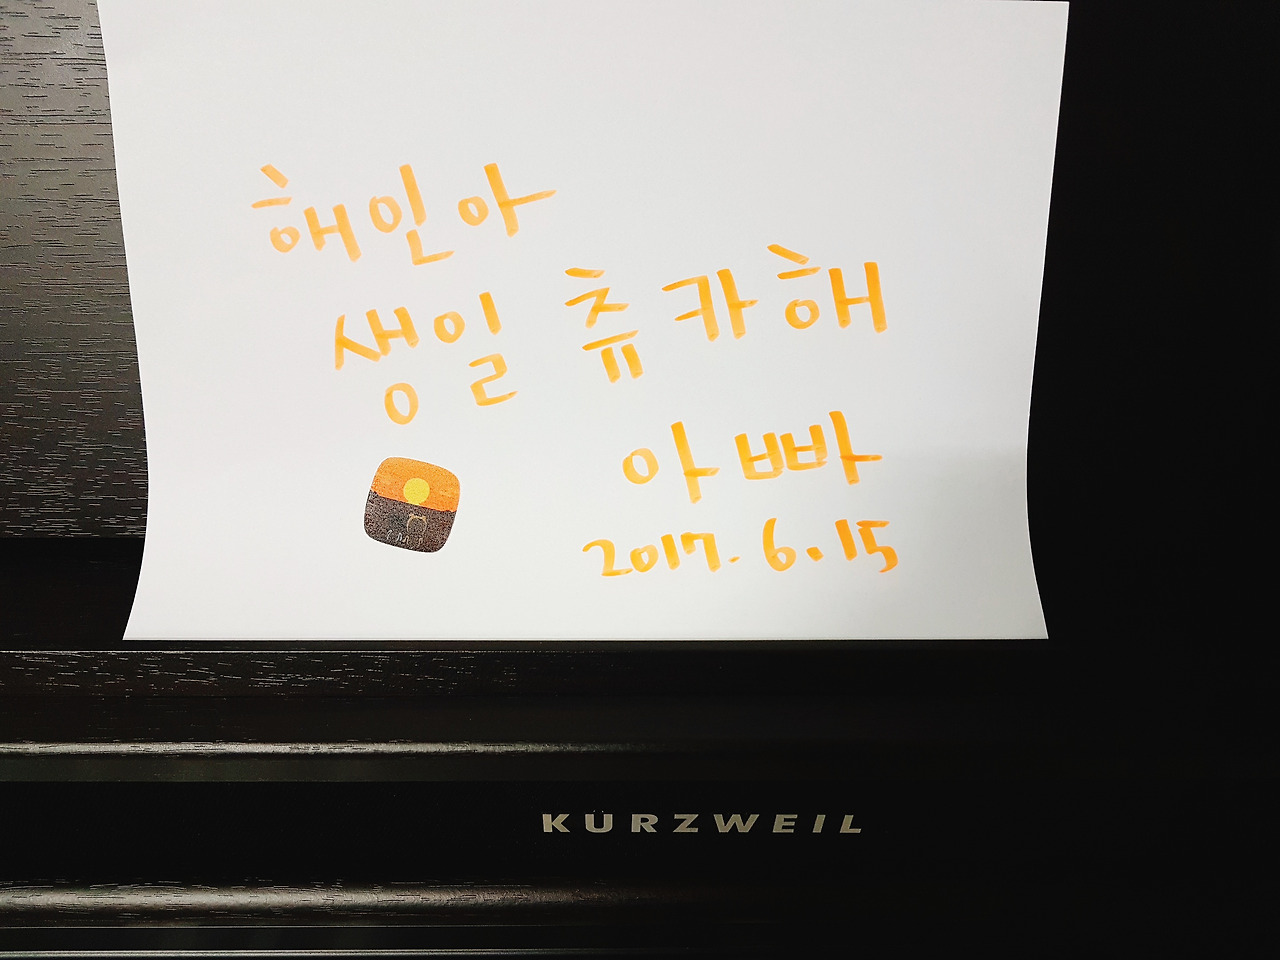 해인아
생일 츄카해
아빠
2017. 6. 15
KURZWEIL